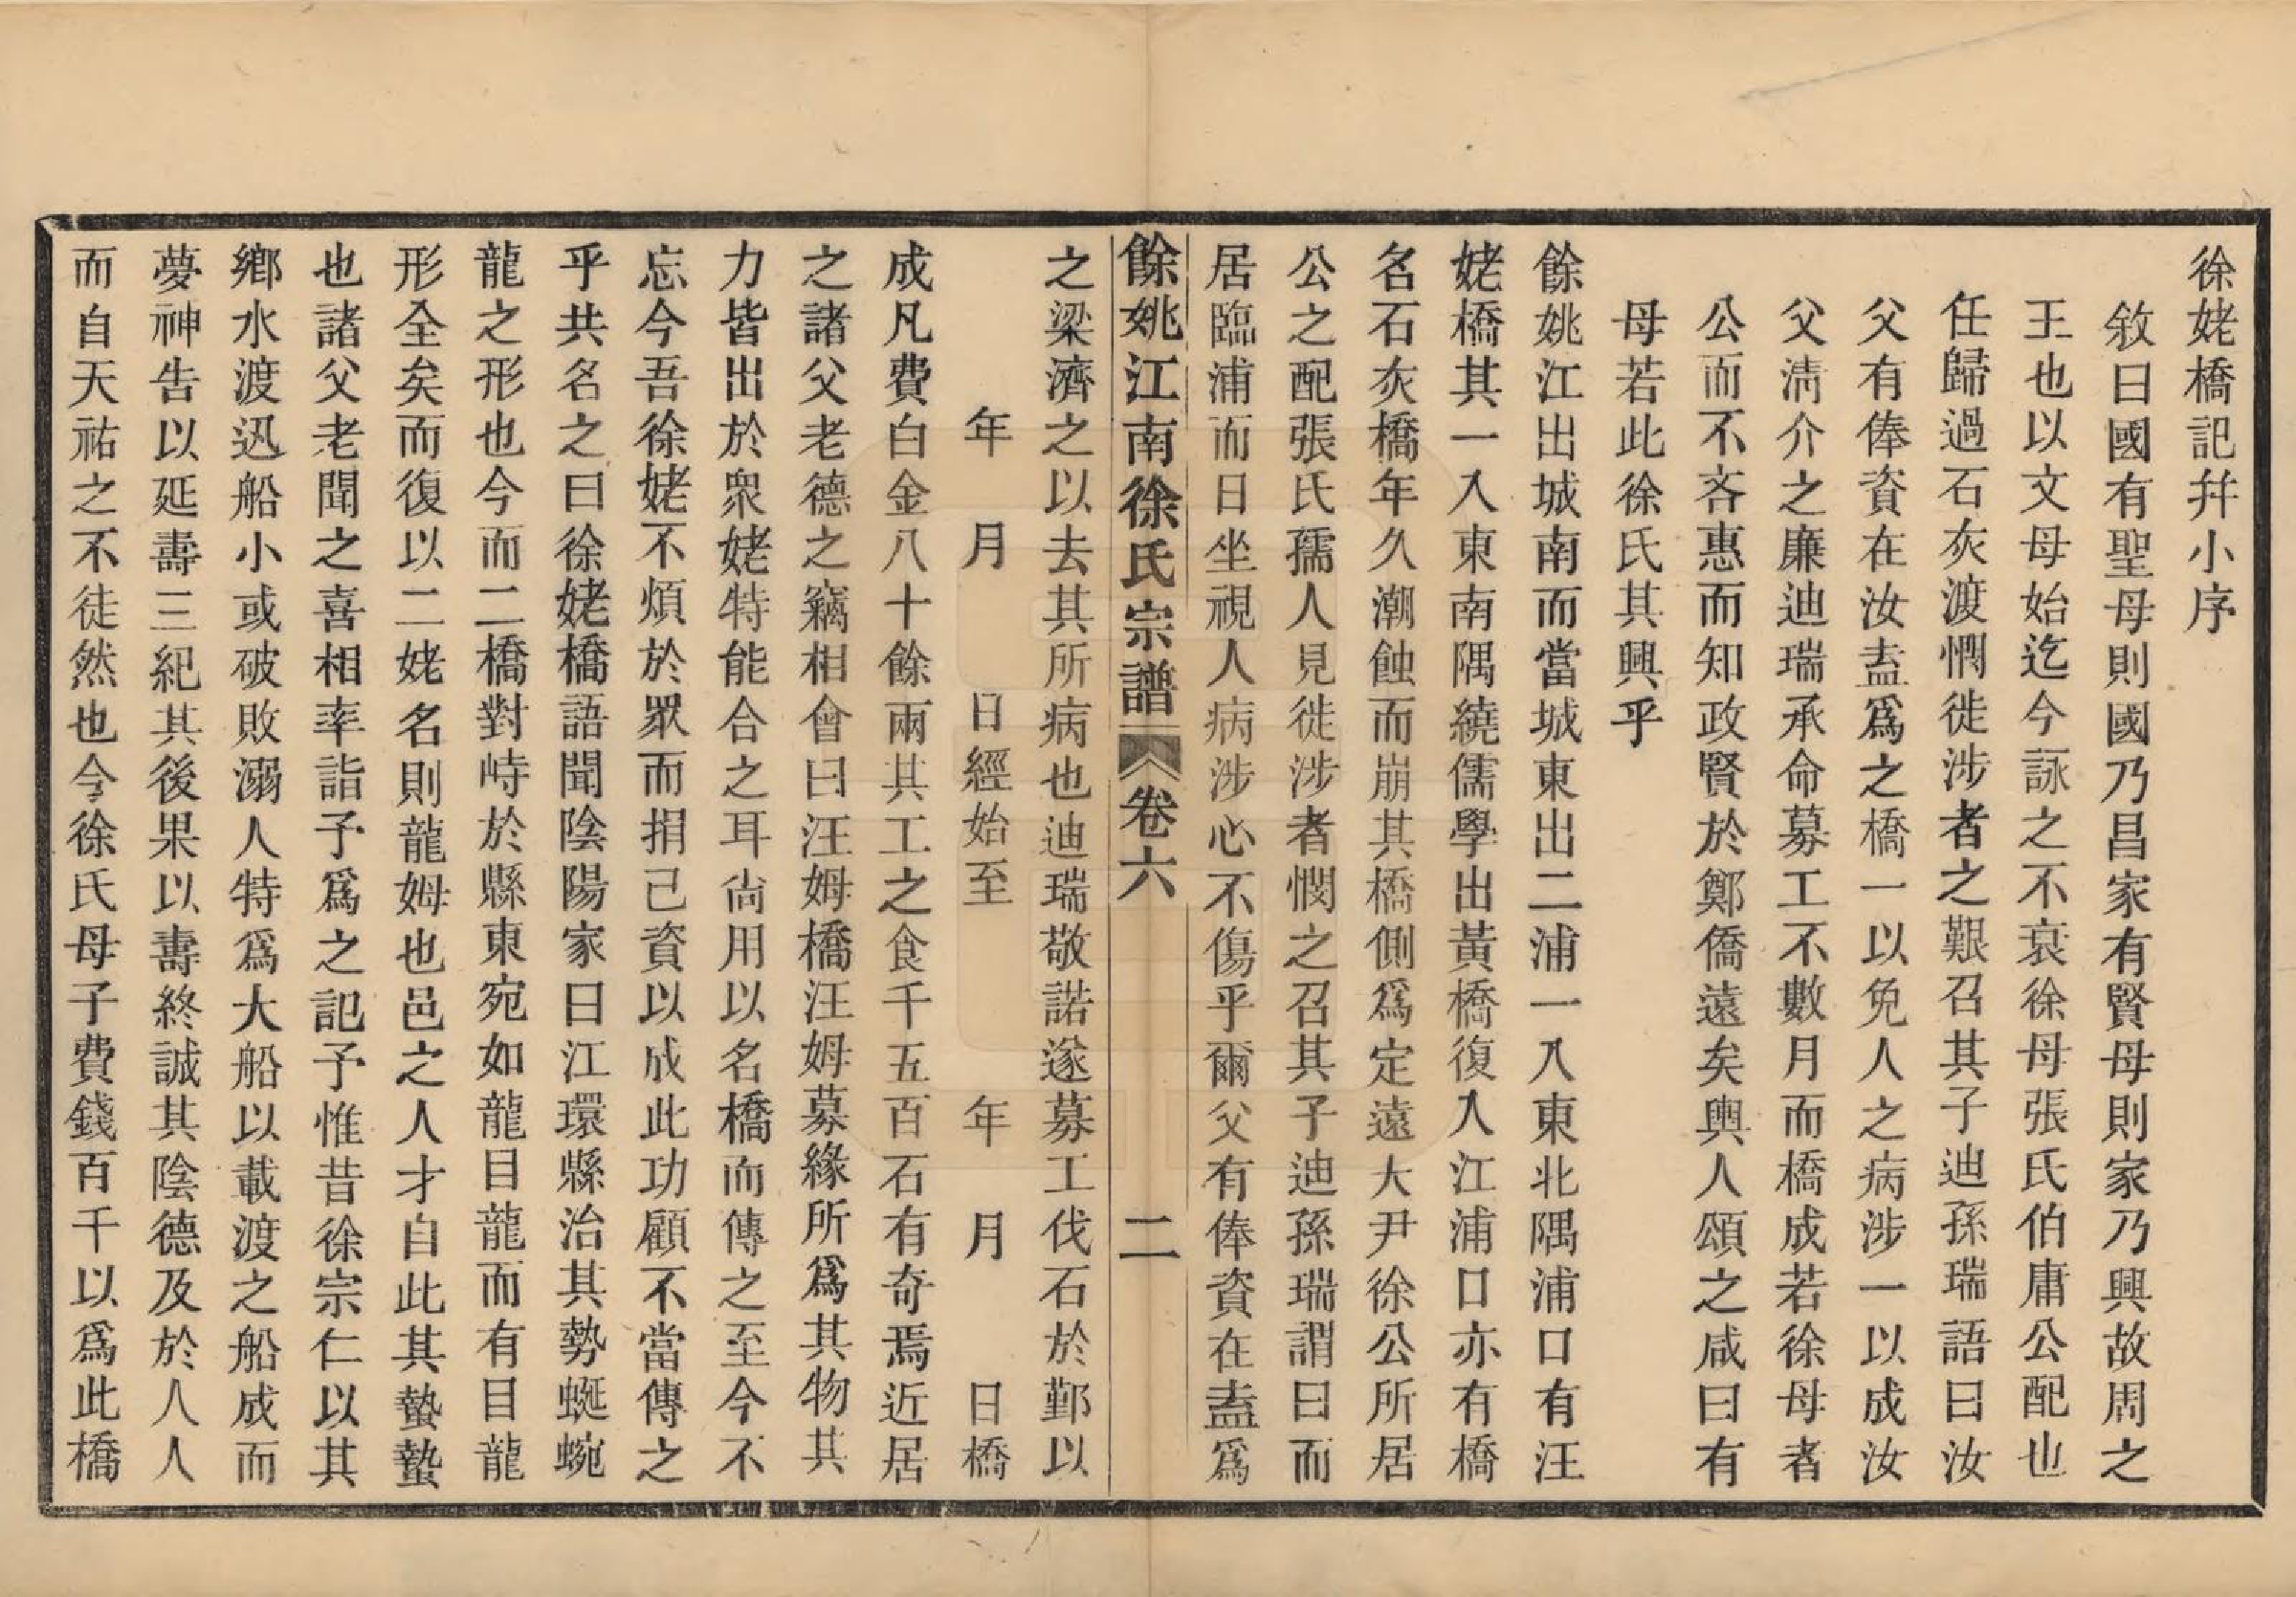 徐姥橋記幷小序
敘曰國有聖母則國乃昌家有賢母則家乃興故周之
王也以文母始迄今詠之不衰徐母張氏伯庸公配也
任歸過石灰渡憫徙涉者之艱召其子迪孫瑞語曰汝
父有俸資在汝盍爲之橋一以免人之病涉一以成汝
父淸介之廉迪瑞承命募工不數月而橋成若徐母者
公而不吝惠而知政賢於鄭僑遠矣輿人頌之咸曰有
母若此徐氏其興乎
餘姚江出城南而當城東出二浦一入東北隅浦口有汪
姥橋其一入東南隅繞儒學出黃橋復入江浦口亦有橋
名石灰橋年久潮蝕而崩其橋側爲定遠大尹徐公所居
公之配張氏孺人見徙涉者憫之召其子迪孫瑞謂曰而
居臨浦而日坐視人病涉心不傷乎爾父有俸資在盍爲
餘姚江南徐氏宗譜 卷六 二
之梁濟之以去其所病也迪瑞敬諾遂募工伐石於鄞以
年 月 日經始至 年 月 日橋
成凡費白金八十餘兩其工之食千五百石有奇焉近居
之諸父老德之竊相會曰汪姆橋汪姆募緣所爲其物其
力皆出於衆姥特能合之耳尙用以名橋而傳之至今不
忘今吾徐姥不煩於眾而捐己資以成此功顧不當傳之
乎共名之曰徐姥橋語聞陰陽家曰江環縣治其勢蜒蜿
龍之形也今而二橋對峙於縣東宛如龍目龍而有目龍
形全矣而復以二姥名則龍姆也邑之人才自此其蟄蟄
也諸父老聞之喜相率詣予爲之記予惟昔徐宗仁以其
鄉水渡迅船小或破敗溺人特爲大船以載渡之船成而
夢神吿以延壽三紀其後果以壽終誠其陰德及於人人
而自天祐之不徒然也今徐氏母子費錢百千以爲此橋